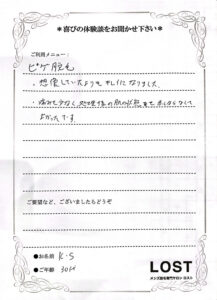 ＊喜びの体験談をお聞かせ下さい＊
ご利用メニュー：
ヒゲ脱毛
・想像していたよりもキレイになりました。
・痛みも少なく処理後の肌の状態も
よかったです。
ご要望など、ございましたらどうぞ
●お名前 K・S
●ご年齢 30代
LOST
メンズ脱毛専門サロン ロスト